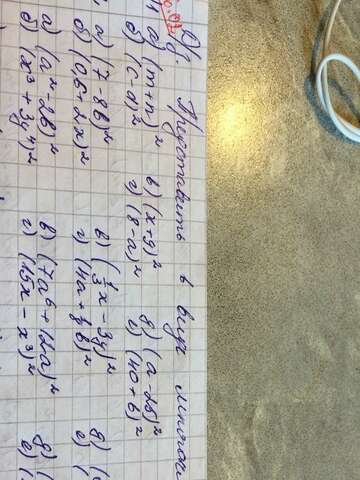 Представить в виде
а) (m+n)² в) (x+y)² д) (a-25)²
б) (c-d)² г) (8-a)² е) (40+b)²
а) (7-8b)² в) (⅓x - 3y)² д) (
б) (0,6+2x)² г) (4a+½b)² е) (
а) (a²-2b)² в) (7a⁶+12a)² д) (
б) (x³+3y⁴)² г) (15x-x³)² е) (